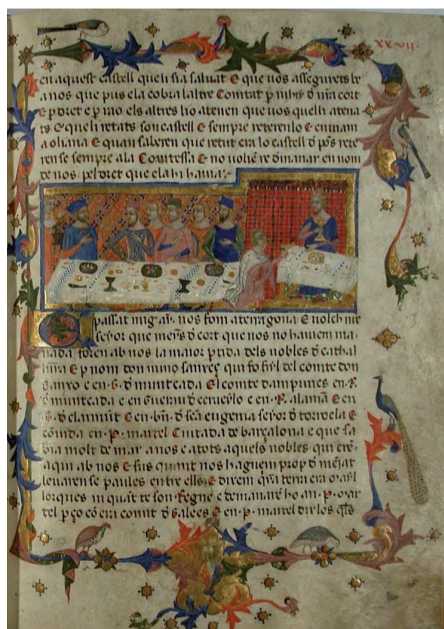 xxvij.
en aquest castell queli sia saluat E que uos assegurets be
a nos que pus ela cobra laltre Comtat
E dret e p rao els altres ho atenen que uos quelli atena
ts E queli retats son castell E sempre reterenlo E enuiam
a oliana E quan saberen que retut era lo castell
ren se sempre ala Comtessa E no uolie
te nos pel dret que ela hi hauia
passat mig an nos fom a terragona E uolch nre
seyor que mens de cort que nos no hauiem ma
nada foren ab nos la maior ptida dels nobles de cathal
unia E p nom don nuno sanxes qui fo fiyl del comte don
sanxo e en G de muntcada El comte dampuries en R
de muntcada e en Guerau de cerueylo e en R alama E en
G de claramut E en bn de sca eugenia seyor de torroela E
couida en P martel Ciutada de barçalona e que sa
bia molt de mar a nos e a tots aquels nobles qui eren
aqui ab nos E sus quant nos haguem prop de menjat
leuaren se paules entre ells E dixem qña terra era
lorques ni quant te son Regne e demanaré ho an P mar
tel p ço cō era comit de galees E en P martel dix los